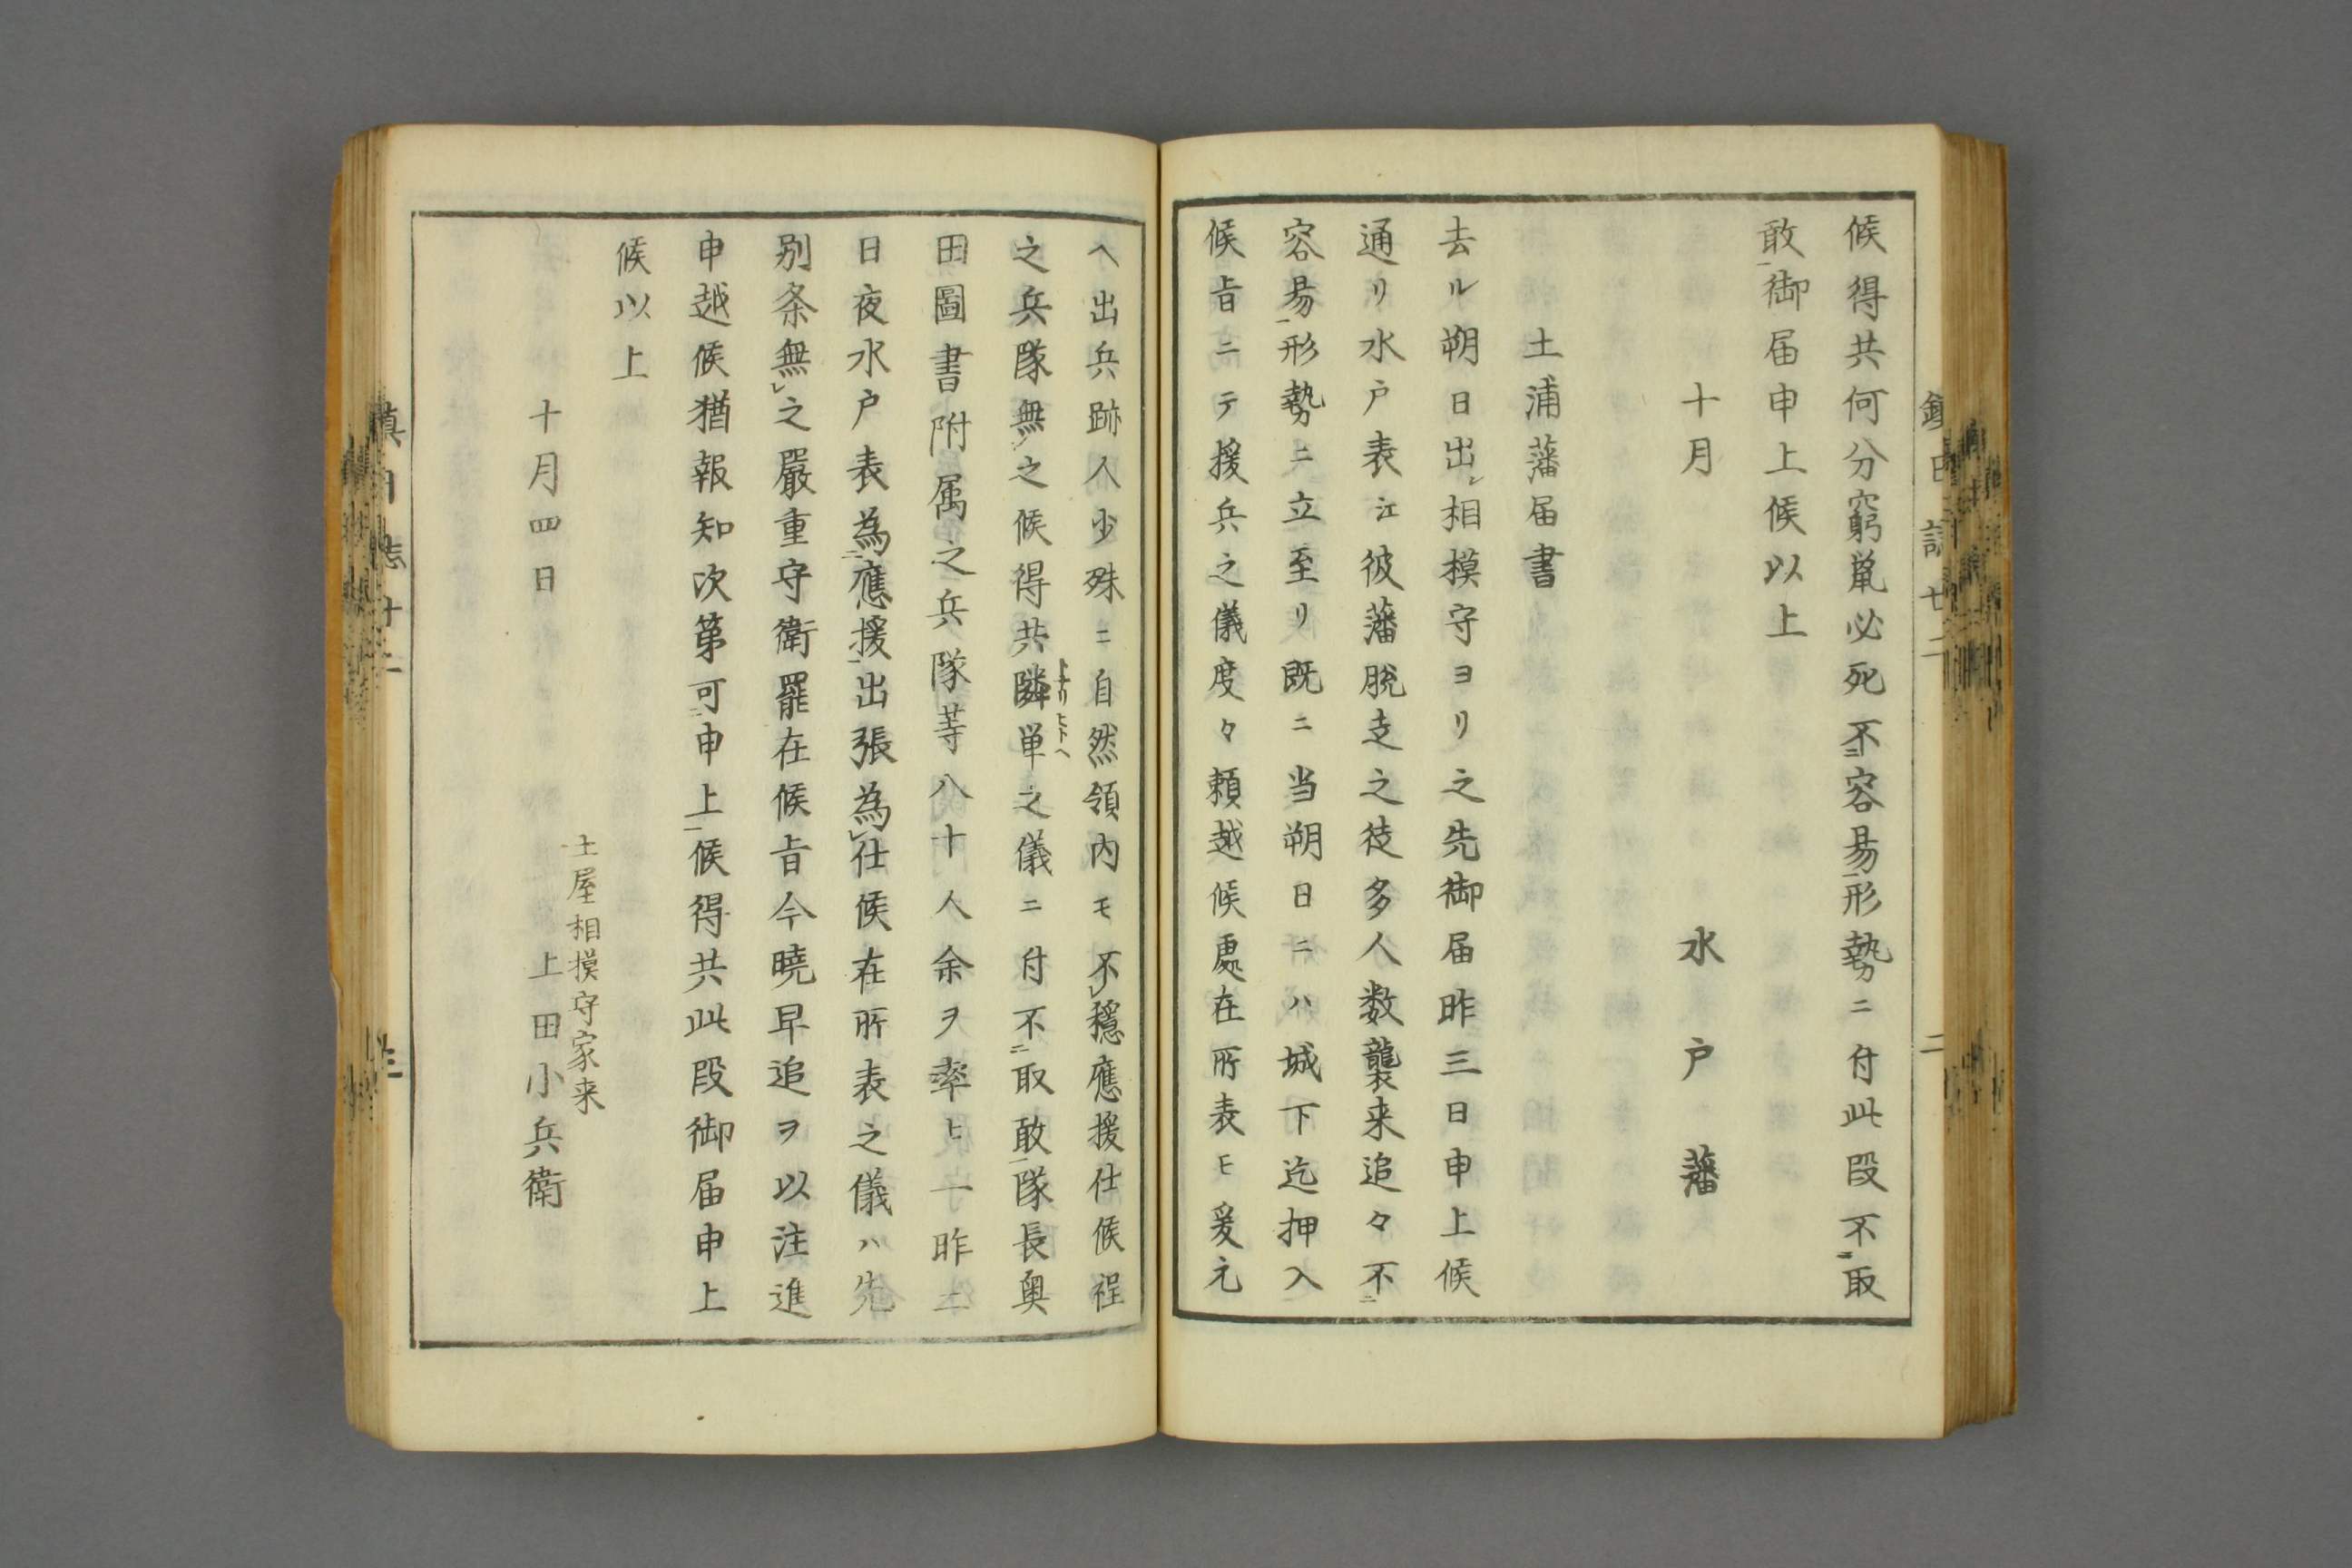 候得共何分窮鼠必死不容易形勢ニ付此段不取
敢御届申上候以上
十月
水戸藩
土浦藩届書
去ル朔日出シ相模守ヨリ之先御届昨三日申上候
通リ水戸表江彼藩脱走之徒多人数襲来追々不
容易形勢ニ立至リ既ニ当朔日ニハ城下迄押入
候旨ニテ援兵之儀度々頼越候處在所表モ爰元
ヘ出兵跡人少殊ニ自然領内モ不穏應援仕候程
之兵隊無之候得共隣単之儀ニ付不取敢隊長奥
トナリヒトヘ
田圖書附属之兵隊等八十人余ヲ率ヒ一昨二
日夜水戸表為應援出張為仕候在所表之儀ハ先
別条無之嚴重守衛罷在候旨今曉早追ヲ以注進
申越候猶報知次第可申上候得共此段御届申上
候以上
土屋相摸守家来
十月四日
上田小兵衛
鎮日誌廿二
二
鎮日誌廿二
三